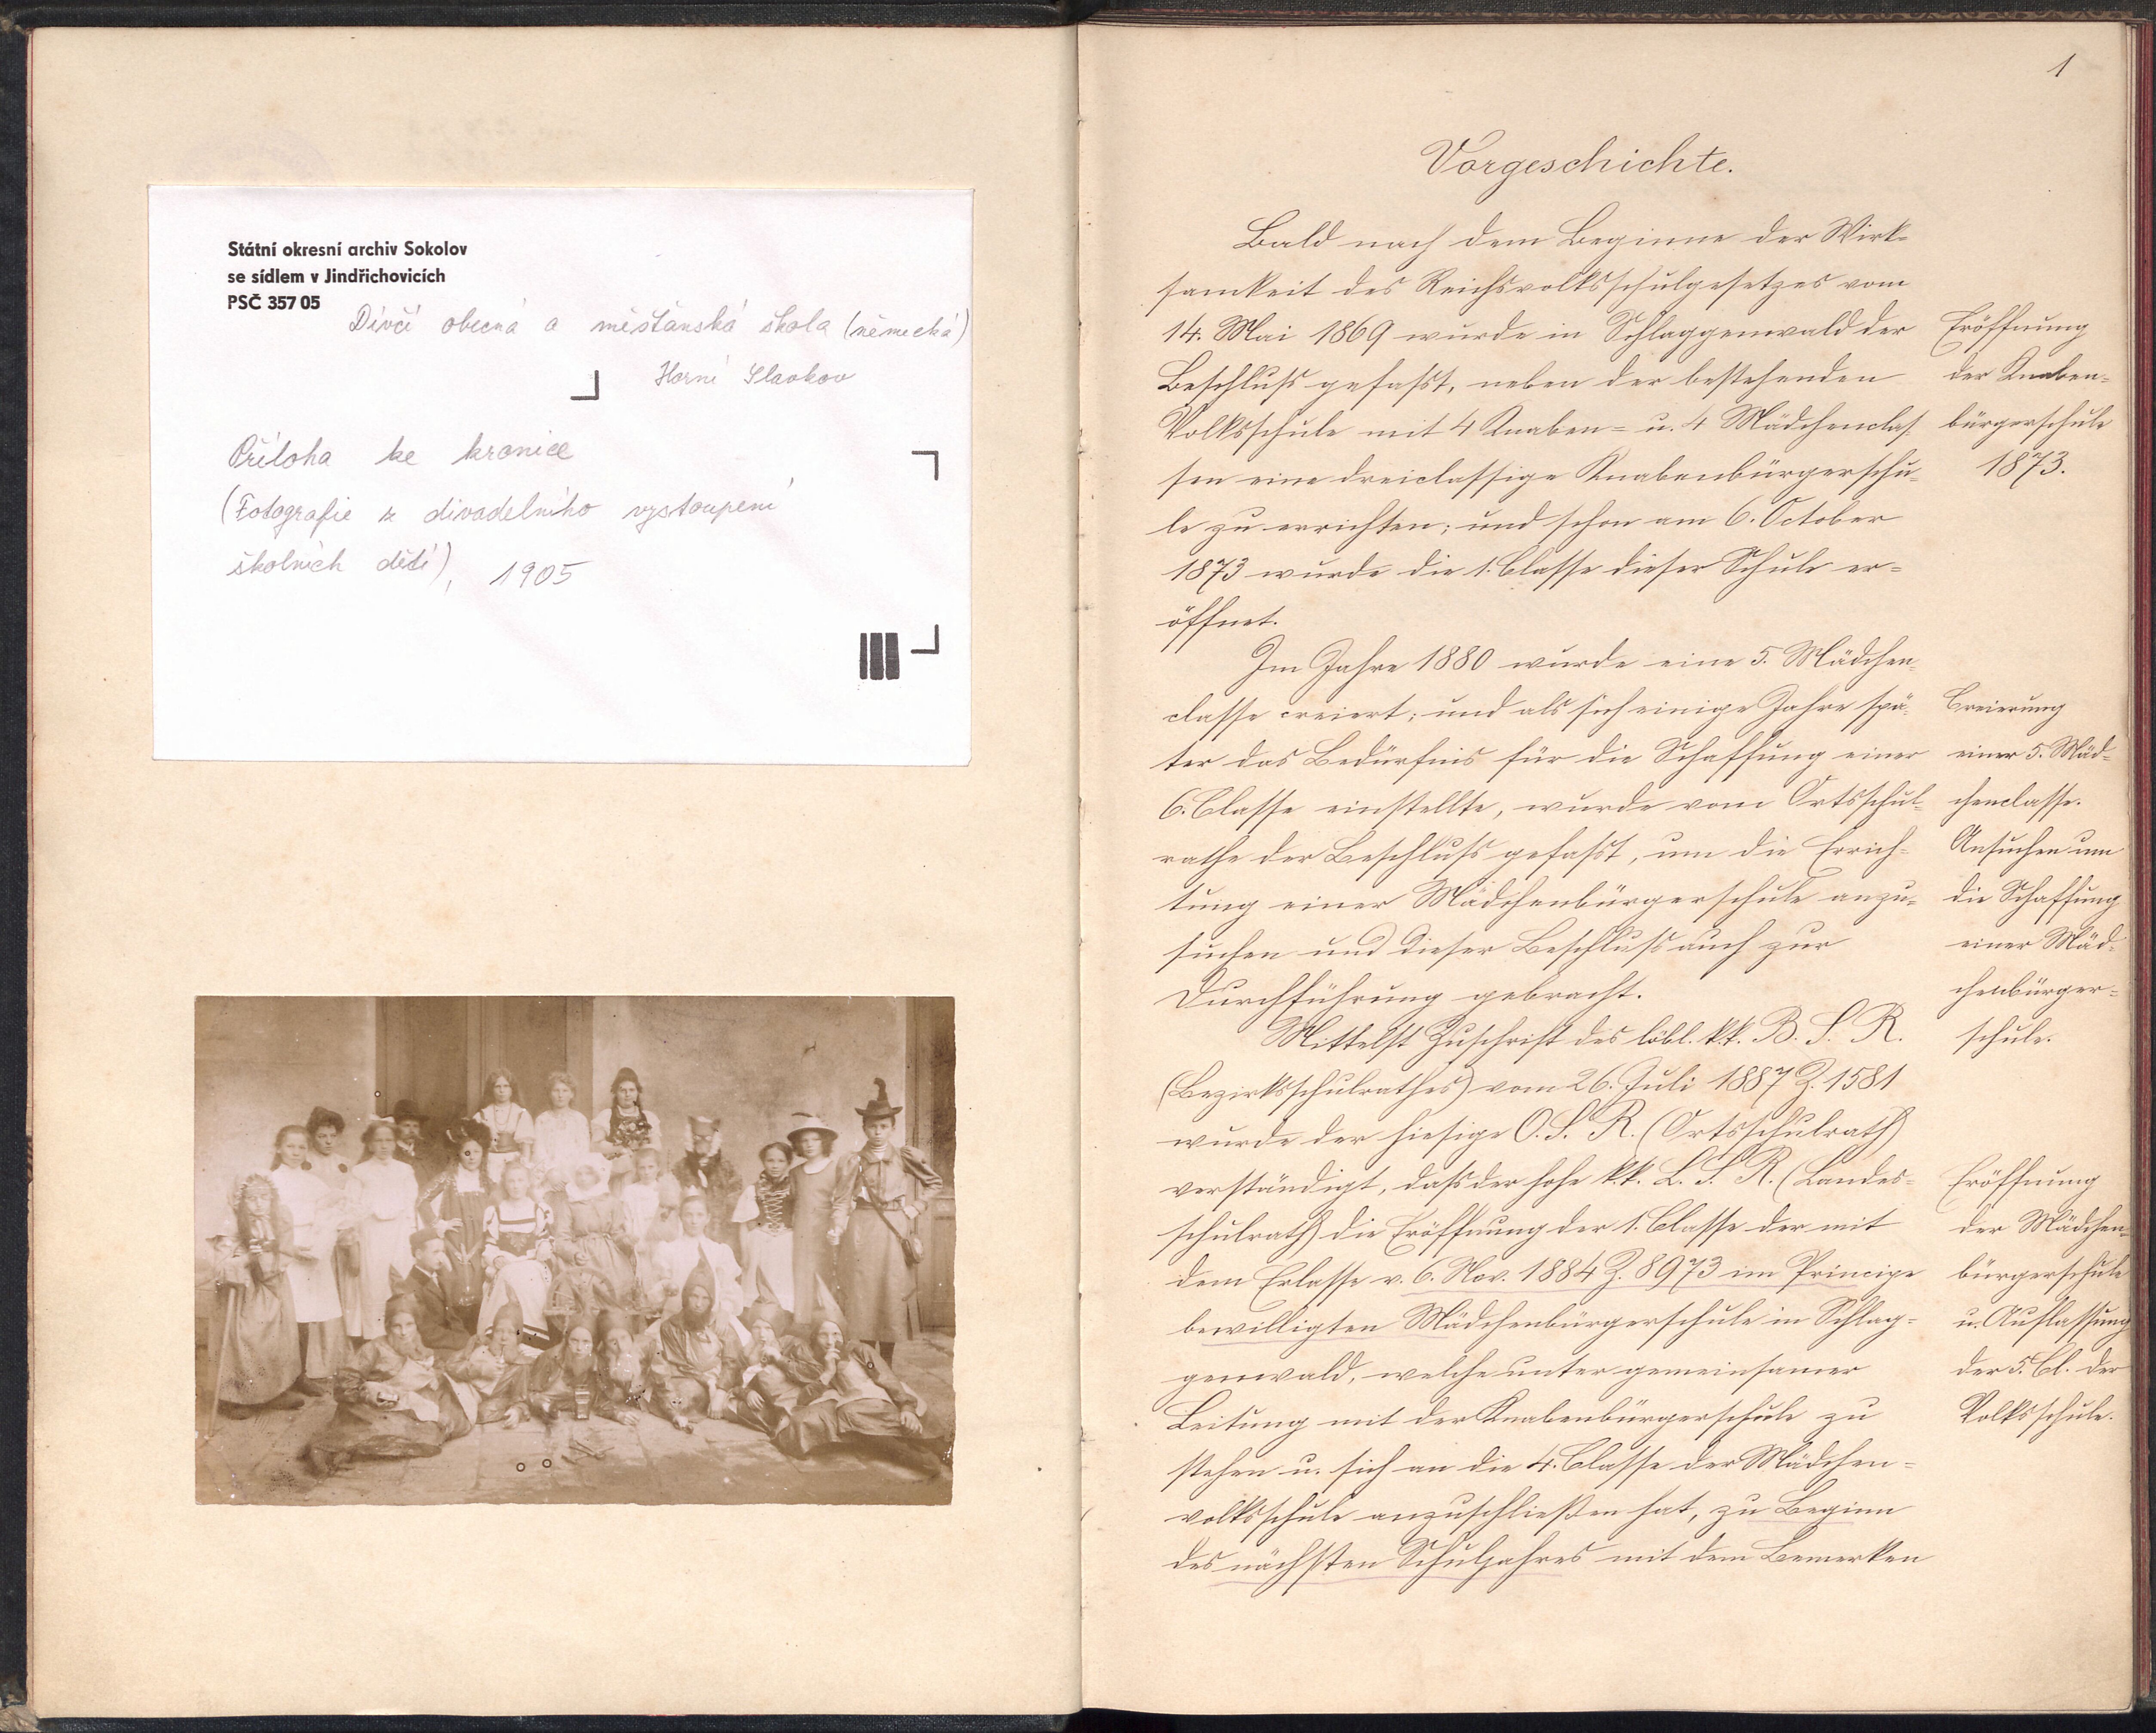 Státní okresní archiv Sokolov
se sídlem v Jindřichovicích
PSČ 357 05
Dívčí obecná a měšťanská škola (německá)
Horní Slavkov
Příloha ke kronice
(Fotografie z divadelního vystoupení
školních dětí), 1905
1
Vorgeschichte.
Bald nach dem Beginne der Wirk-
samkeit des Reichsvolksschulgesetzes vom
14. Mai 1869 wurde in Schlaggenwald der
Beschluss gefasst, neben der bestehenden
Volksschule mit 4 Knaben- u. 4 Mädchenclas-
sen eine dreiclassige Knabenbürgerschu-
le zu errichten; und schon am 6. October
1873 wurde die 1. Classe dieser Schule er-
öffnet.
Eröffnung
der Knaben-
bürgerschule
1873.
Im Jahre 1880 wurde eine 5. Mädchen-
classe creiert; und als sich einige Jahre spä-
ter das Bedürfnis für die Schaffung einer
6. Classe einstellte, wurde vom Ortsschul-
rathe der Beschluss gefasst, um die Errich-
tung einer Mädchenbürgerschule anzu-
suchen und dieser Beschluss auch zur
Durchführung gebracht.
Creierung
einer 5. Mäd-
chenclasse.
Ansuchen um
die Schaffung
einer Mäd-
chenbürger-
schule.
Mittelst Zuschrift des löbl. k.k. B. S. R.
(Bezirksschulrathes) vom 26. Juli 1887 Z. 1581
wurde der hiesige O. S. R. (Ortsschulrath)
verständigt, dass der hohe k.k. L. S. R. (Landes-
schulrath) die Eröffnung der 1. Classe der mit
dem Erlasse v. 6. Nov. 1884 Z. 8973 im Principe
bewilligten Mädchenbürgerschule in Schlag-
genwald, welche unter gemeinsamer
Leitung mit der Knabenbürgerschule zu
stehen u. sich an die 4. Classe der Mädchen-
volksschule anzuschließen hat, zu Beginn
des nächsten Schuljahres mit dem Bemerken
Eröffnung
der Mädchen-
bürgerschule
u. Auflassung
der 5. Cl. der
Volksschule.